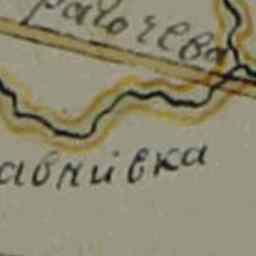 рагочева
авнивка